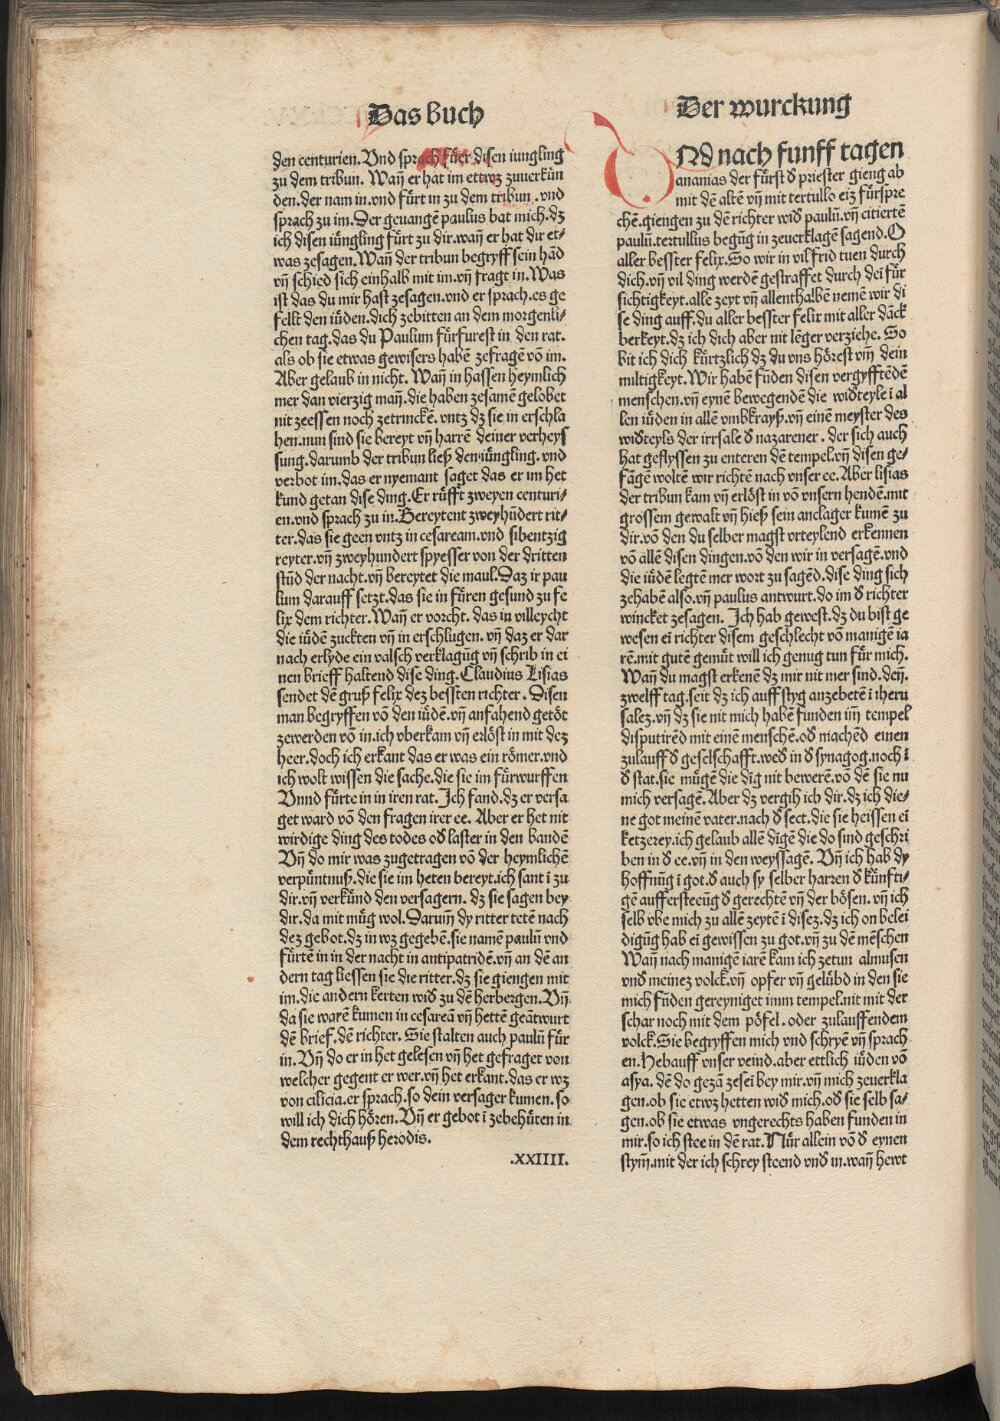 Das buch
den centurien. Vnd sprach fuͤer disen iungling
zu dem tribun. Wañ er hat im etwaz zuuerkün
den. der nam in. vnd fuͤrt in zu dem tribun. vnd
sprach zu im. Der geuangē paulus bat mich. dz
ich disen iuͤngling fuͤrt zu dir. wañ er hat dir et⸗
was zesagen. Wañ der tribun begryff sein hād
vñ schied sich einhalb mit im. vñ fragt in. Was
ist das du mir hast zesagen. vnd er sprach. es ge
felt den iuͤden. dich zebitten an dem morgenli⸗
chen tag. das du Paulum fuͤrfurest in den rat.
als ob sie etwas gewisers habē zefragē vō im.
Aber gelaub in nicht. Wañ in hassen heymlich
mer dan vierzig mañ. die haben zesamē gelobet
nit zeessen noch zetrinckē. vntz dz sie in erschla
hen. nun sind sie bereyt vñ harrē deiner verheys
sung. darumb der tribun ließ den iuͤngling. vnd
verbot im. das er nyemant saget das er im het
kund getan dise ding. Er ruͤfft zweyen centuri⸗
en. vnd sprach zu in. Bereytent zweyhūdert rit⸗
ter. das sie geen vntz in cesaream. vnd sibentzig
reyter. vñ zweyhundert spyesser von der dritten
stūd der nacht. vñ bereytet die maul. Daz ir pau
lum darauff setzt. das sie in fuͤren gesund zu fe
lix dem richter. Wañ er vorcht. das in villeycht
die iuͤdē zuckten vñ in erschlugen. vñ daz er dar
nach erlyde ein valsch verklagūg vñ schrib in ei
nen brieff haltend dise ding. Claudius Lisias
sendet dē gruß felix dez bessten richter. Disen
man begryffen vō den iuͤdē. vñ anfahend getoͤt
zewerden vō in. ich vberkam vñ erloͤst in mit dez
heer. doch ich erkant das er was ein roͤmer. vnd
ich wolt wissen die sache. die sie im fuͤrwurffen
Vnnd fuͤrte in in iren rat. Ich fand. dz er versa
get ward vō den fragen irer ee. Aber er het nit
wirdige ding des todes od̕ laster in den bandē
Vñ do mir was zugetragen vō der heymlichē
verpuͤntnuß. die sie im heten bereyt. ich sant ī zu
dir. vñ verkuͤnd den versagern. dz sie sagen bey
dir. da mit muͤg wol. Daruñ dy ritter tetē nach
dez gebot. dz in wz gegebē. sie namē paulū vnd
fuͤrtē in in der nacht in antipatridē. vñ an dē an
dern tag liessen sie die ritter. dz sie giengen mit
im. die andern kerten wid̕ zu dē herbergen. Vñ
da sie warē kumen in cesareā vñ hettē geātwurt
dē brief. dē richter. Sie stalten auch paulū fuͤr
in. Vñ do er in het gelesen vñ het gefraget von
welcher gegent er wer. vñ het erkant. das er wz
von cilicia. er sprach. so dein versager kumen. so
will ich dich hoͤren. Vñ er gebot ī zebehuͤten in
dem rechthauß herodis.
.XXIIII.
Der wurckung
VNd nach funff tagen
ananias der fuͤrst d̕ priester gieng ab
mit dē altē vñ mit tertullo eiz fuͤrspre
chē. giengen zu dē richter wid̕ paulū. vñ citiertē
paulū. tertullus begūg in zeuerklagē sagend. O
aller besster felix. So wir in vil frid tuen durch
dich. vñ vil ding werdē gestraffet durch dei fuͤr
sichtigkeyt. alle zeyt vñ allenthalbē nemē wir di
se ding auff. du aller besster felix mit aller dāck
berkeyt. dz ich dich aber nit lēger verziehe. So
bit ich dich kuͤrtzlich dz du vns hoͤrest vñ dein
miltigkeyt. Wir habē fūden disen vergyfftēdē
menschen. vñ eynē bewegendē die wid̕teyle ī al
len iuͤden in allē vmbkrayß. vñ einē meyster des
wid̕teyls der irrsale d̕ nazarener. der sich auch
hat geflyssen zu enteren dē tempel. vñ disen ge⸗
fāgē woltē wir richtē nach vnser ee. Aber lisias
der tribun kam vñ erloͤst in vō vnsern hendē. mit
grossem gewalt vñ hieß sein anclager kumē zu
dir. vō den du selber magst vrteylend erkennen
vō allē disen dingen. vō den wir in versagē. vnd
die iuͤdē legtē mer wort zu sagēd. dise ding sich
zehabē also. vñ paulus antwurt. do im d̕ richter
wincket zesagen. Ich hab gewest. dz du bist ge
wesen ei richter disem geschlecht vō manigē ia
rē. mit gutē gemuͤt will ich genug tun fuͤr mich.
Wañ du magst erkenē dz mir nit mer sind. deñ.
zwelff tag. seit dz ich auff styg anzebetē ī iheru
salez. vñ dz sie nit mich habē funden im tempel
disputirēd mit einē menschē. od̕ machēd einen
zulauff d̕ geselschafft. wed̕ in d̕ synagog. noch ī
d̕ stat. sie muͤgē die dīg nit bewerē. vō dē sie nu
mich versagē. Aber dz vergih ich dir. dz ich die⸗
ne got meinē vater. nach d̕ sect. die sie heissen ei
ketzerey. ich gelaub allē dīgē die do sind geschri
ben in d̕ ee. vñ in den weyssagē. Vñ ich hab dy
hoffnūg ī got. d̕ auch sy selber harren d̕ kuͤnfti⸗
gē aufferstēūg d̕ gerechtē vñ der boͤsen. vñ ich
selb vbe mich zu allē zeytē ī disez. dz ich on belei
digūg hab ei gewissen zu got. vñ zu dē mēschen
Wañ nach manigē iarē kam ich zetun almusen
vnd meinez volck. vñ opfer vñ geluͤbd in den sie
mich fūden gereyniget imm tempel. nit mit der
schar noch mit dem poͤfel. oder zulauffendem
volck. Sie begryffen mich vnd schryē vñ sprach
en. Hebauff vnser veind. aber ettlich iuͤden vō
asya. dē do gezā zesei bey mir. vñ mich zeuerkla
gen. ob sie etwz hetten wid̕ mich. od̕ sie selb sa⸗
gen. ob sie etwas vngerechts haben funden in
mir. so ich stee in dē rat. Nuͤr allein vō d̕ eynen
stym̄. mit der ich schrey steend vnd̕ in. wañ hewt